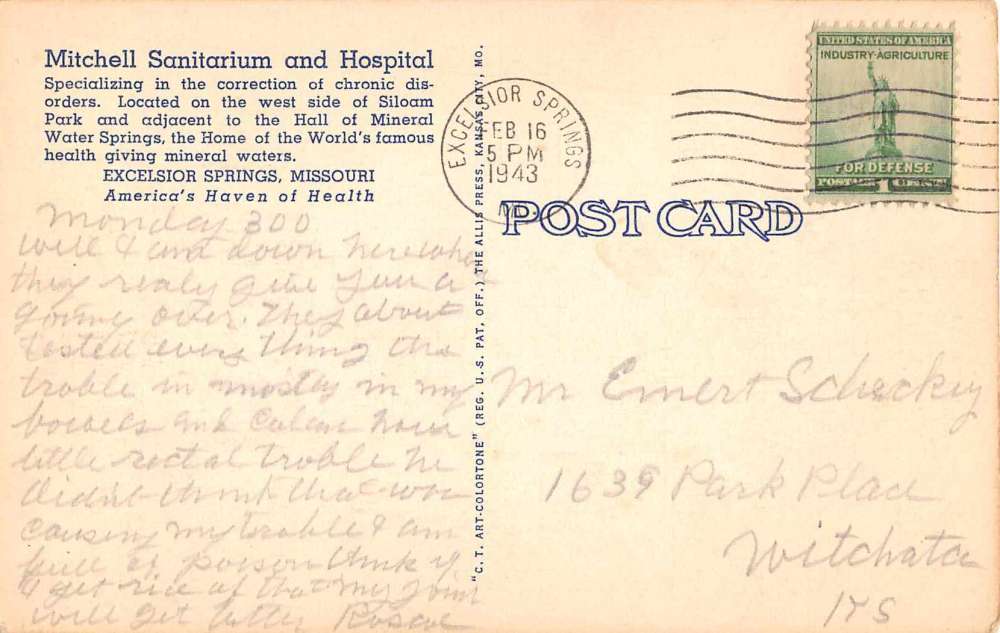 Mitchell Sanitarium and Hospital
Specializing in the correction of chronic dis-
orders. Located on the west side of Siloam
Park and adjacent to the Hall of Mineral
Water Springs, the Home of the World's famous
health giving mineral waters.
EXCELSIOR SPRINGS, MISSOURI
America's Haven of Health
Monday 300
will I am down here where
they realy give you a
going over. They about
tested every thing the
troble in mostly in my
bowels and Colon have
little rectal troble he
didn't think that was
causing my troble I am
full of poison think if
I get rid of that my joints
will get better Roscoe
"C. T. ART-COLORTONE" (REG. U. S. PAT. OFF.) THE ALLIS PRESS, KANSAS CITY, MO.
EXCELSIOR SPRINGS
FEB 16
5 PM
1943
MO.
UNITED STATES OF AMERICA
INDUSTRY-AGRICULTURE
FOR DEFENSE
POSTAGE 1 CENTS
POST CARD
Mr Emert Scheckey
1639 Park Place
Witchata
KS